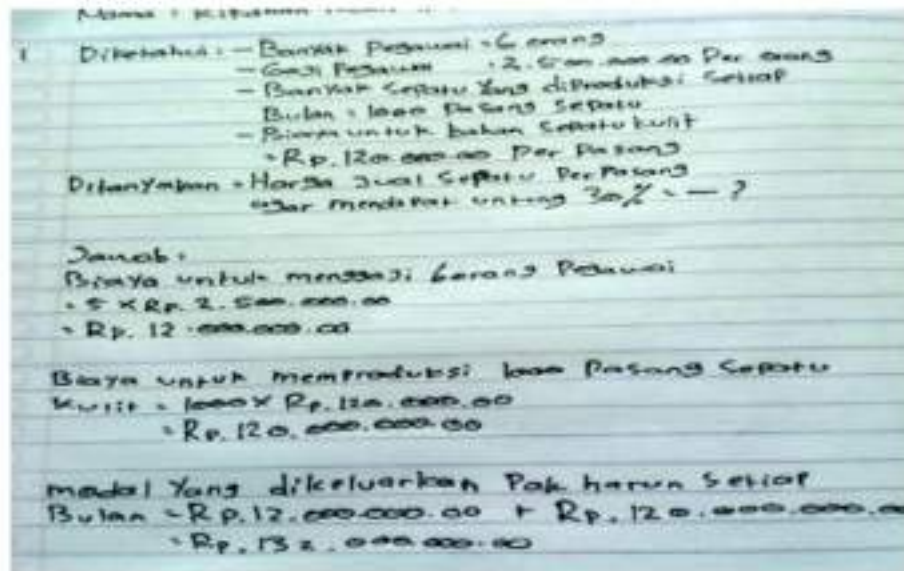 Nama :
1 Diketahui : - Banyak Pegawai = 6 orang
- Gaji Pegawai : 2.500.000.00 Per orang
- Banyak Sepatu Yang diProduksi Setiap
Bulan = 1000 Pasang Sepatu
- Biaya untuk bahan Sepatu kulit
= Rp. 120.000.00 Per Pasang
Ditanyakan = Harga Jual Sepatu Per Pasang
agar mendapat untung 30% = — ?
Jawab :
Biaya untuk menggaji 6 orang Pegawai
= 5 x Rp. 2.500.000.00
= Rp. 12.000.000.00
Biaya untuk memproduksi 1000 Pasang Sepatu
Kulit = 1000 x Rp. 120.000.00
= Rp. 120.000.000.00
modal Yang dikeluarkan Pak harun Setiap
Bulan = Rp. 12.000.000.00 + Rp. 120.000.000.00
= Rp. 132.000.000.00